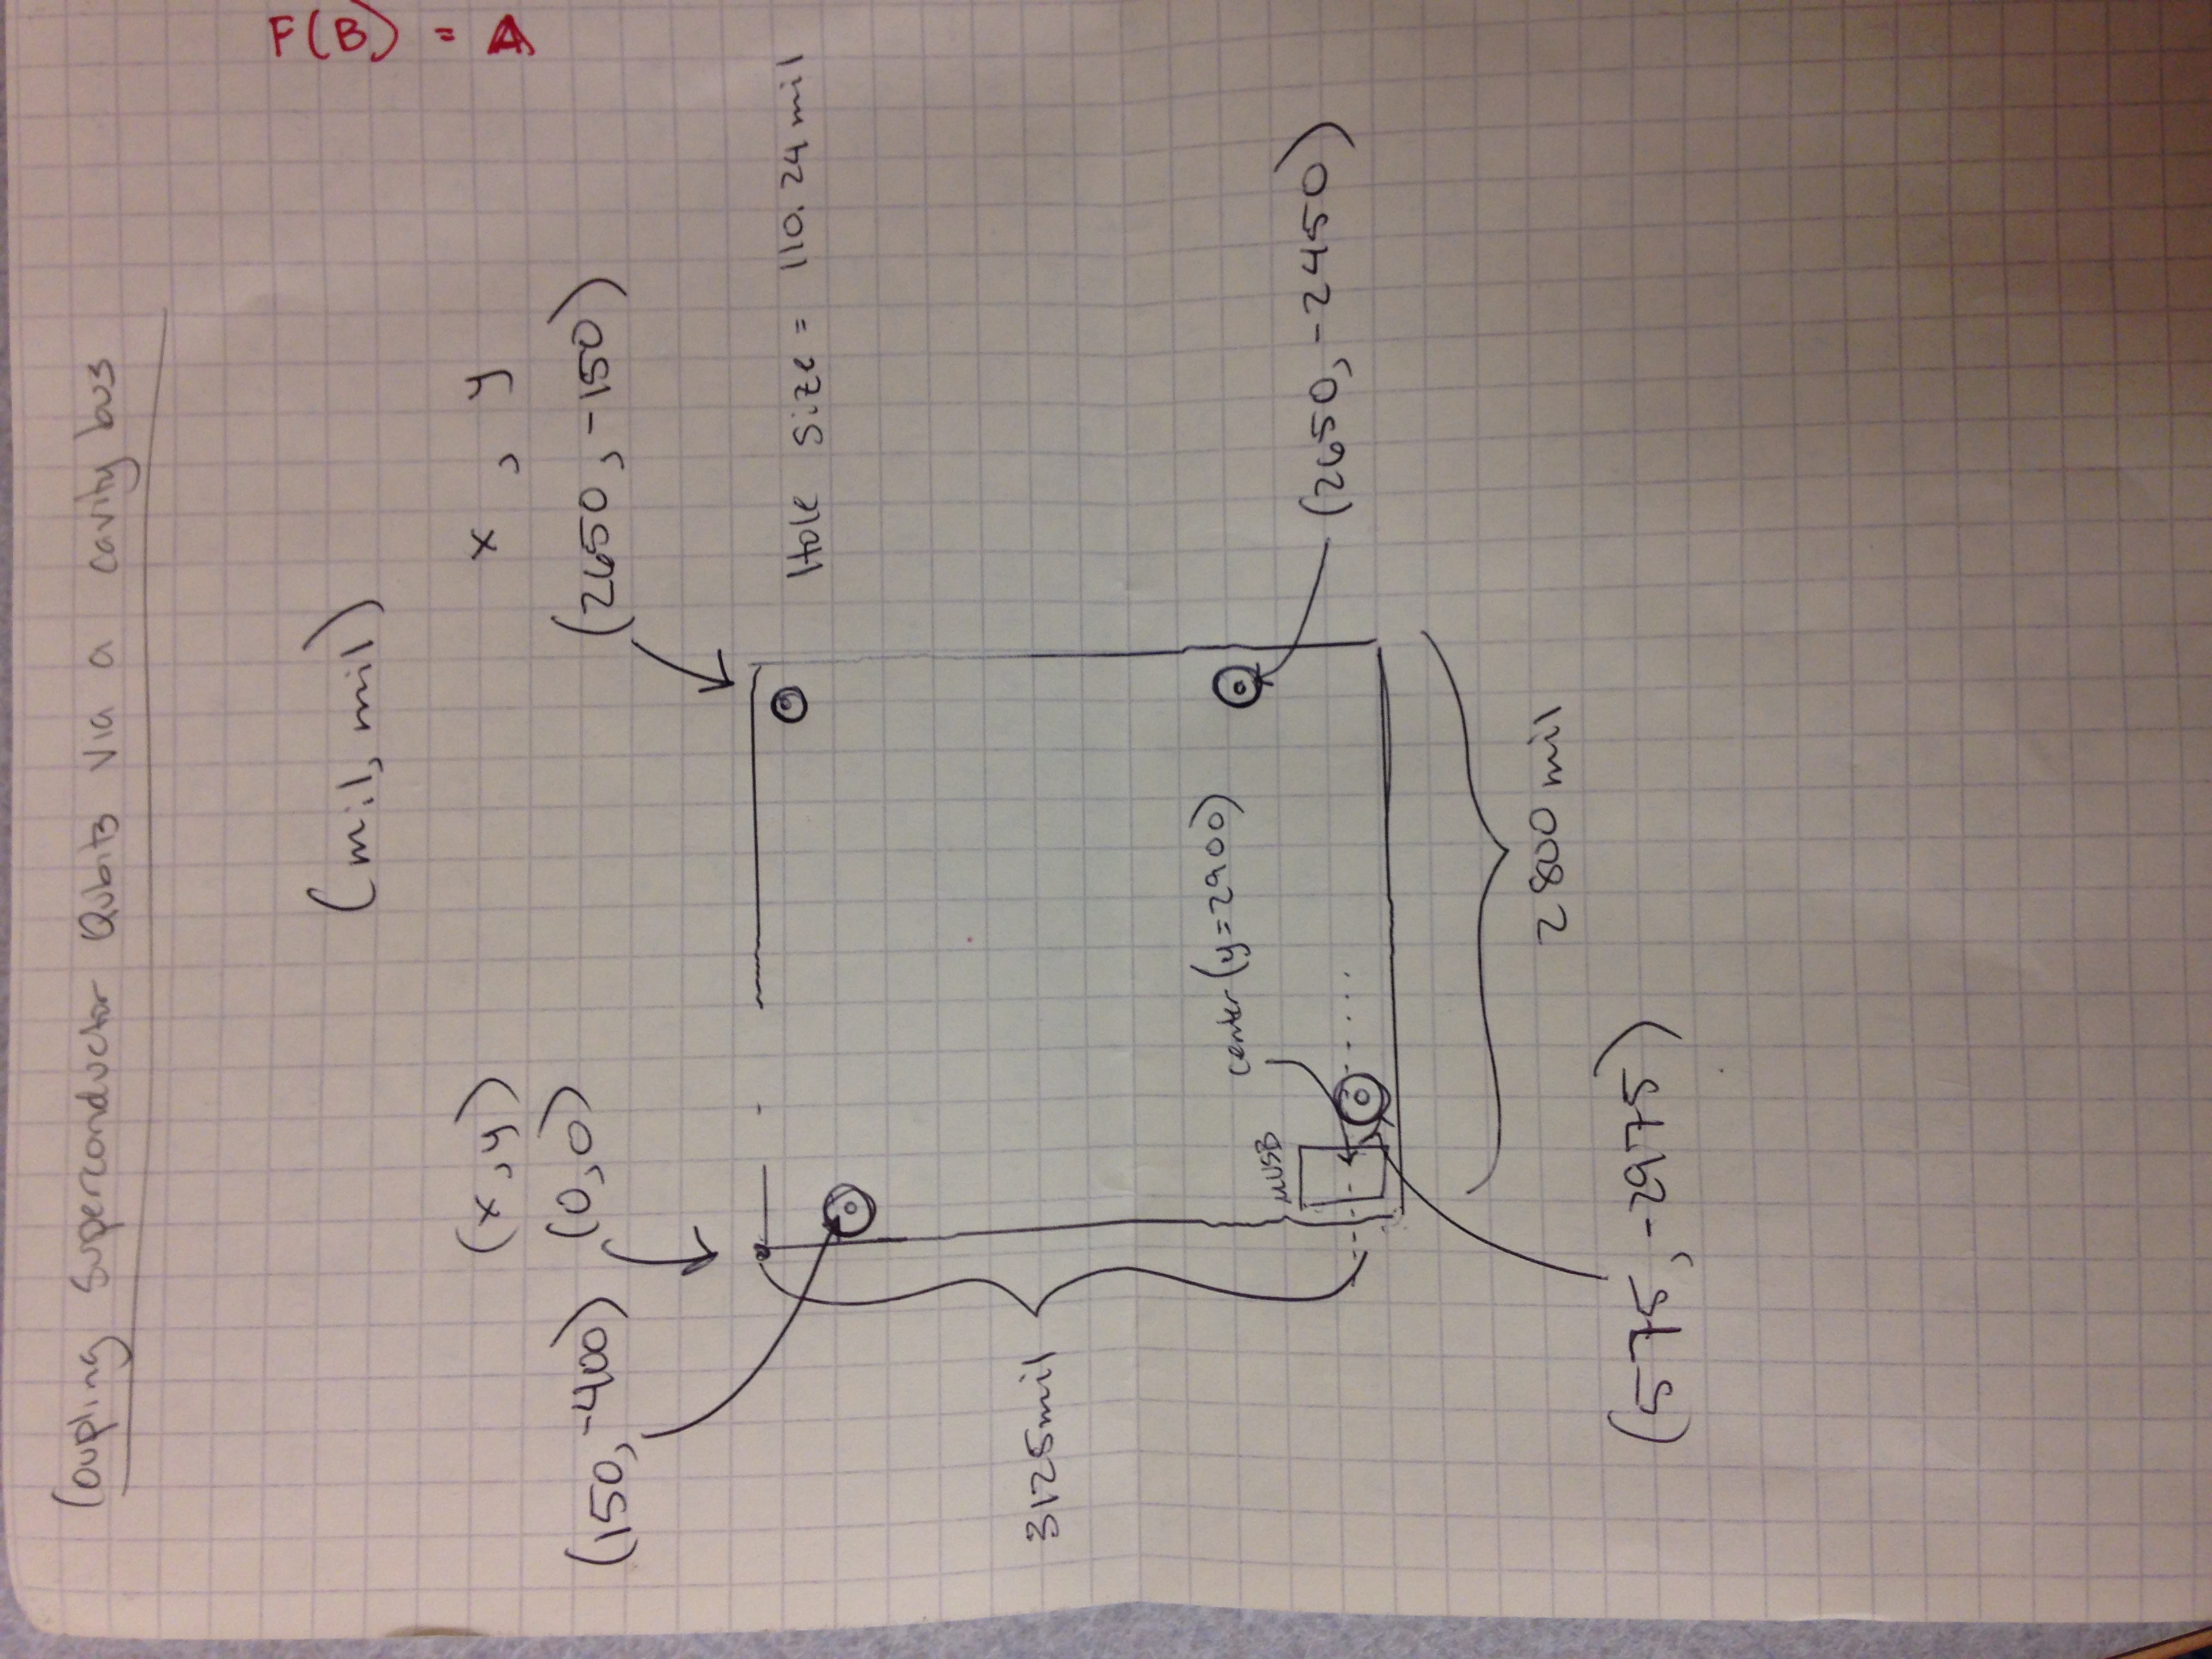 Coupling Superconductor Qubits via a cavity bus
(mil, mil)
F(B) = A
(x, y)
x , y
(150, -400)
(0, 0)
(2650, -150)
Hole size = 110.24 mil
3125mil
center (y=2900)
μUSB
(2650, -2450)
2800 mil
(575, -2975)